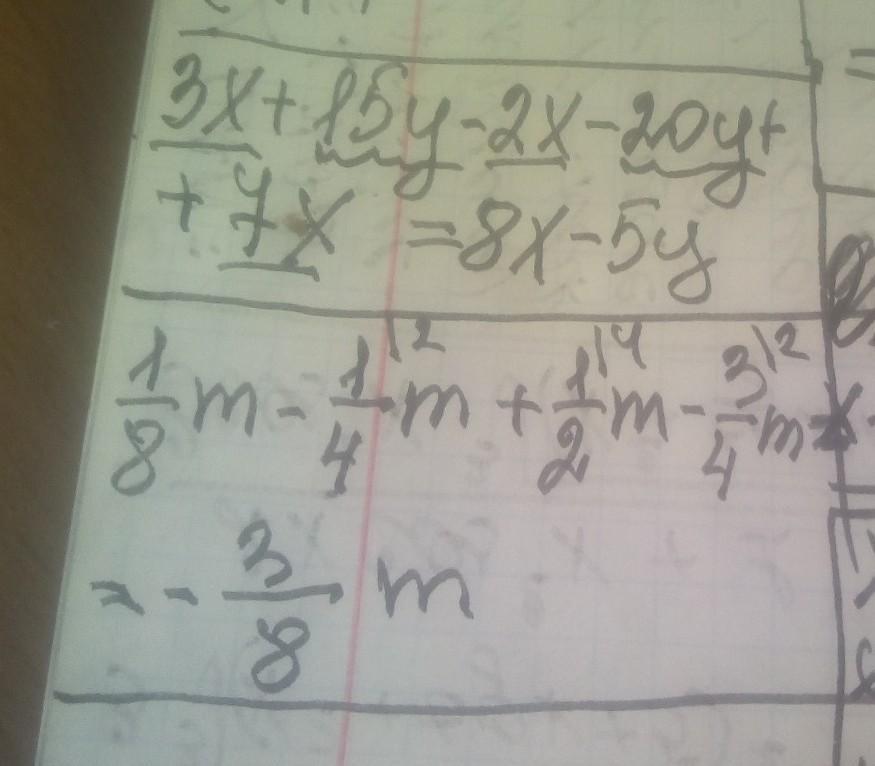 3x+15y-2x-20y+
+7x =8x-5y
1/8 m - 1/4\2 m + 1/2\4 m - 3/4\2 m =
= - 3/8 m